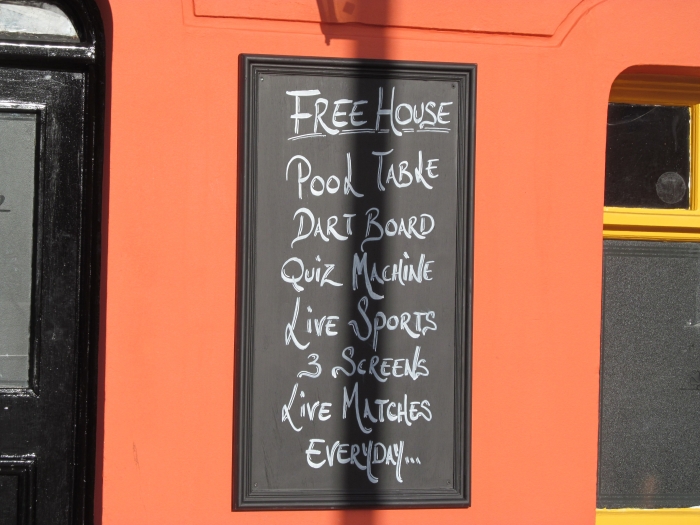 FREE HOUSE
POOL TABLE
DART BOARD
QUIZ MACHINE
LIVE SPORTS
3 SCREENS
LIVE MATCHES
EVERYDAY...